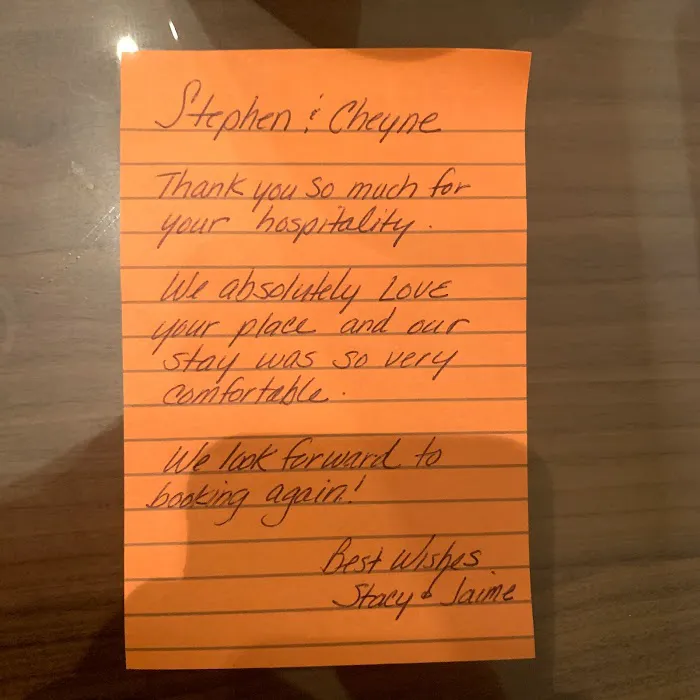 Stephen & Cheyne
Thank you so much for
your hospitality.
We absolutely LOVE
your place and our
stay was so very
comfortable.
We look forward to
booking again!
Best Wishes
Stacy & Jaime